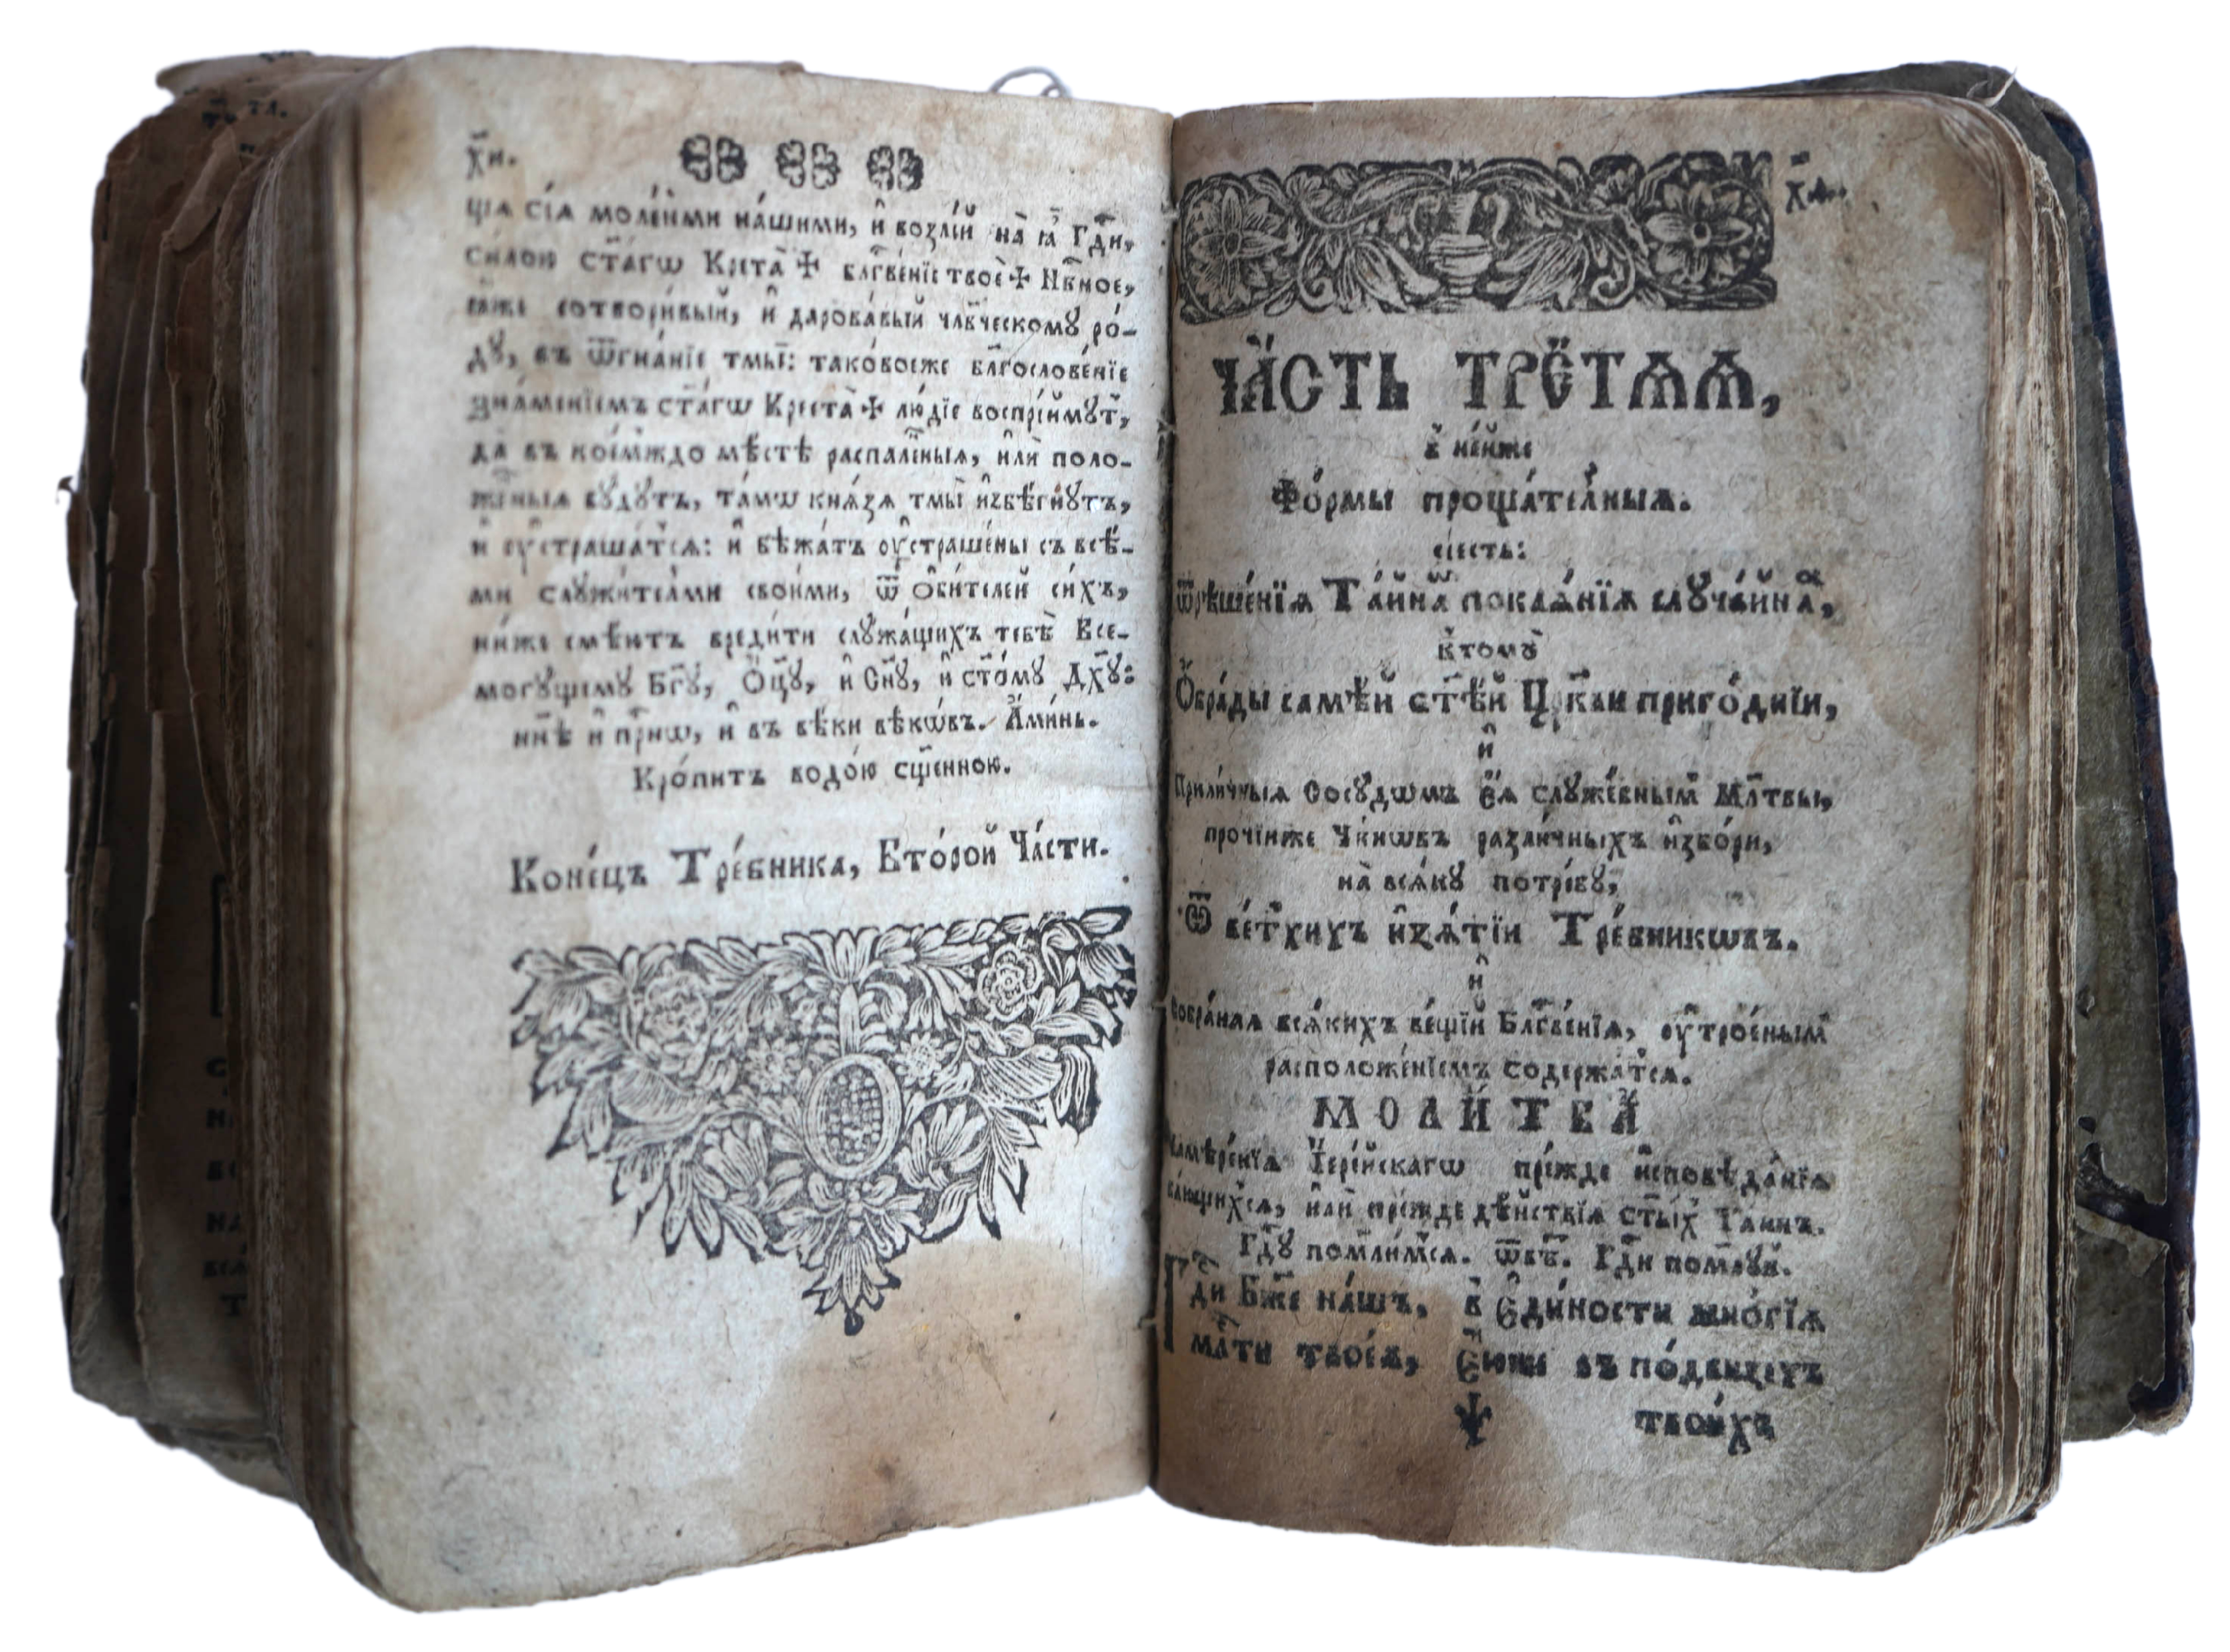 х҃и.
щїѧ сїѧ моле́ньми на́шими, и҆ возлі́й на̀ ѧ҆̀ Гдⷭ҇и,
си́лою ст҃а́гѡ Крⷭ҇та̀ ✠ блгⷭ҇ве́нїе твоѐ ✠ Нбⷭ҇ное,
ꙗ҆́же сотвори́вый, и҆ дарова́вый члв҃ческому ро́-
ду, въ ѿгна́нїе тмы̀: тако́воеже бл҃гослове́нїе
зна́менїемъ ст҃а́гѡ Креста̀ ✠ лю́дїе воспрі́ймутъ,
да̀ въ кое́мждо мѣ́стѣ распале́ныѧ, и҆лѝ поло-
же́ныѧ бу́дутъ, та́мѡ кнѧ́зѧ тмы̀ и҆збѣ́гнутъ,
и҆ ᲂу҆страша́тсѧ: и҆ бѣжа́тъ ᲂу҆страше́ны съ всѣ́-
ми служи́телѧми свои́ми, ѿ ѻ҆би́телей си́хъ,
ни́же смѣ́ютъ вреди́ти служа́щихъ тебѣ̀ Все-
могу́щему Бг҃у, Ѻ҆ц҃у̀, и҆ Сн҃у, и҆ ст҃о́му Дх҃у:
нн҃ѣ и҆ при́снѡ, и҆ въ вѣ́ки вѣкѡ́въ. А҆ми́нь.
Кро́питъ водо́ю сщ҃е́нною.
Коне́цъ Тре́бника, Второ́й Ча́сти.
х҃а.
ЧА́СТЬ ТРЕ́ТѦѦ,
в̾ не́йже
Фо́рмы проща́телныѧ.
сїесть:
ѿрѣше́нїѧ Та́йнѡ покаѧ́нїѧ случа́йнаѧ,
ктому̀
Ѻ҆бра́ды самѣ́й ст҃ѣ́й Цр҃кви приго́днїи,
и҆
Прили́чныѧ Сосу́дѡмъ є҆ѧ̀ служе́бнымъ Мл҃твы,
прочїиже Чи́нѡвъ разли́чныхъ и҆збо́ри,
на̀ всѧ́ку потре́бу,
Ѿ ве́тхихъ и҆зѧ́тїи Тре́бникѡвъ.
и҆
Собра́наѧ всѧ́кихъ ве́щїй Блгⷭ҇ве́нїѧ, ᲂу҆трое́нымъ
расположе́нїемъ содержа́тсѧ.
МОЛИ́ТВА
Намѣ́ренїѧ І҆ере́йскагѡ пре́жде и҆сповѣ́данїѧ
ка́ющихсѧ, и҆лѝ пре́жде дѣ́йствїѧ ст҃ы́хъ Таинъ.
Гдⷭ҇у помо́лимсѧ. ѿвѣ́тъ. Гдⷭ҇и поми́луй.
Гдⷭ҇и Бж҃е на́шъ, в̾ є҆ди́ности мно́гїѧ
мл҃ти твоеѧ̀, є҆́юже въ по́двизехъ
твои́хъ